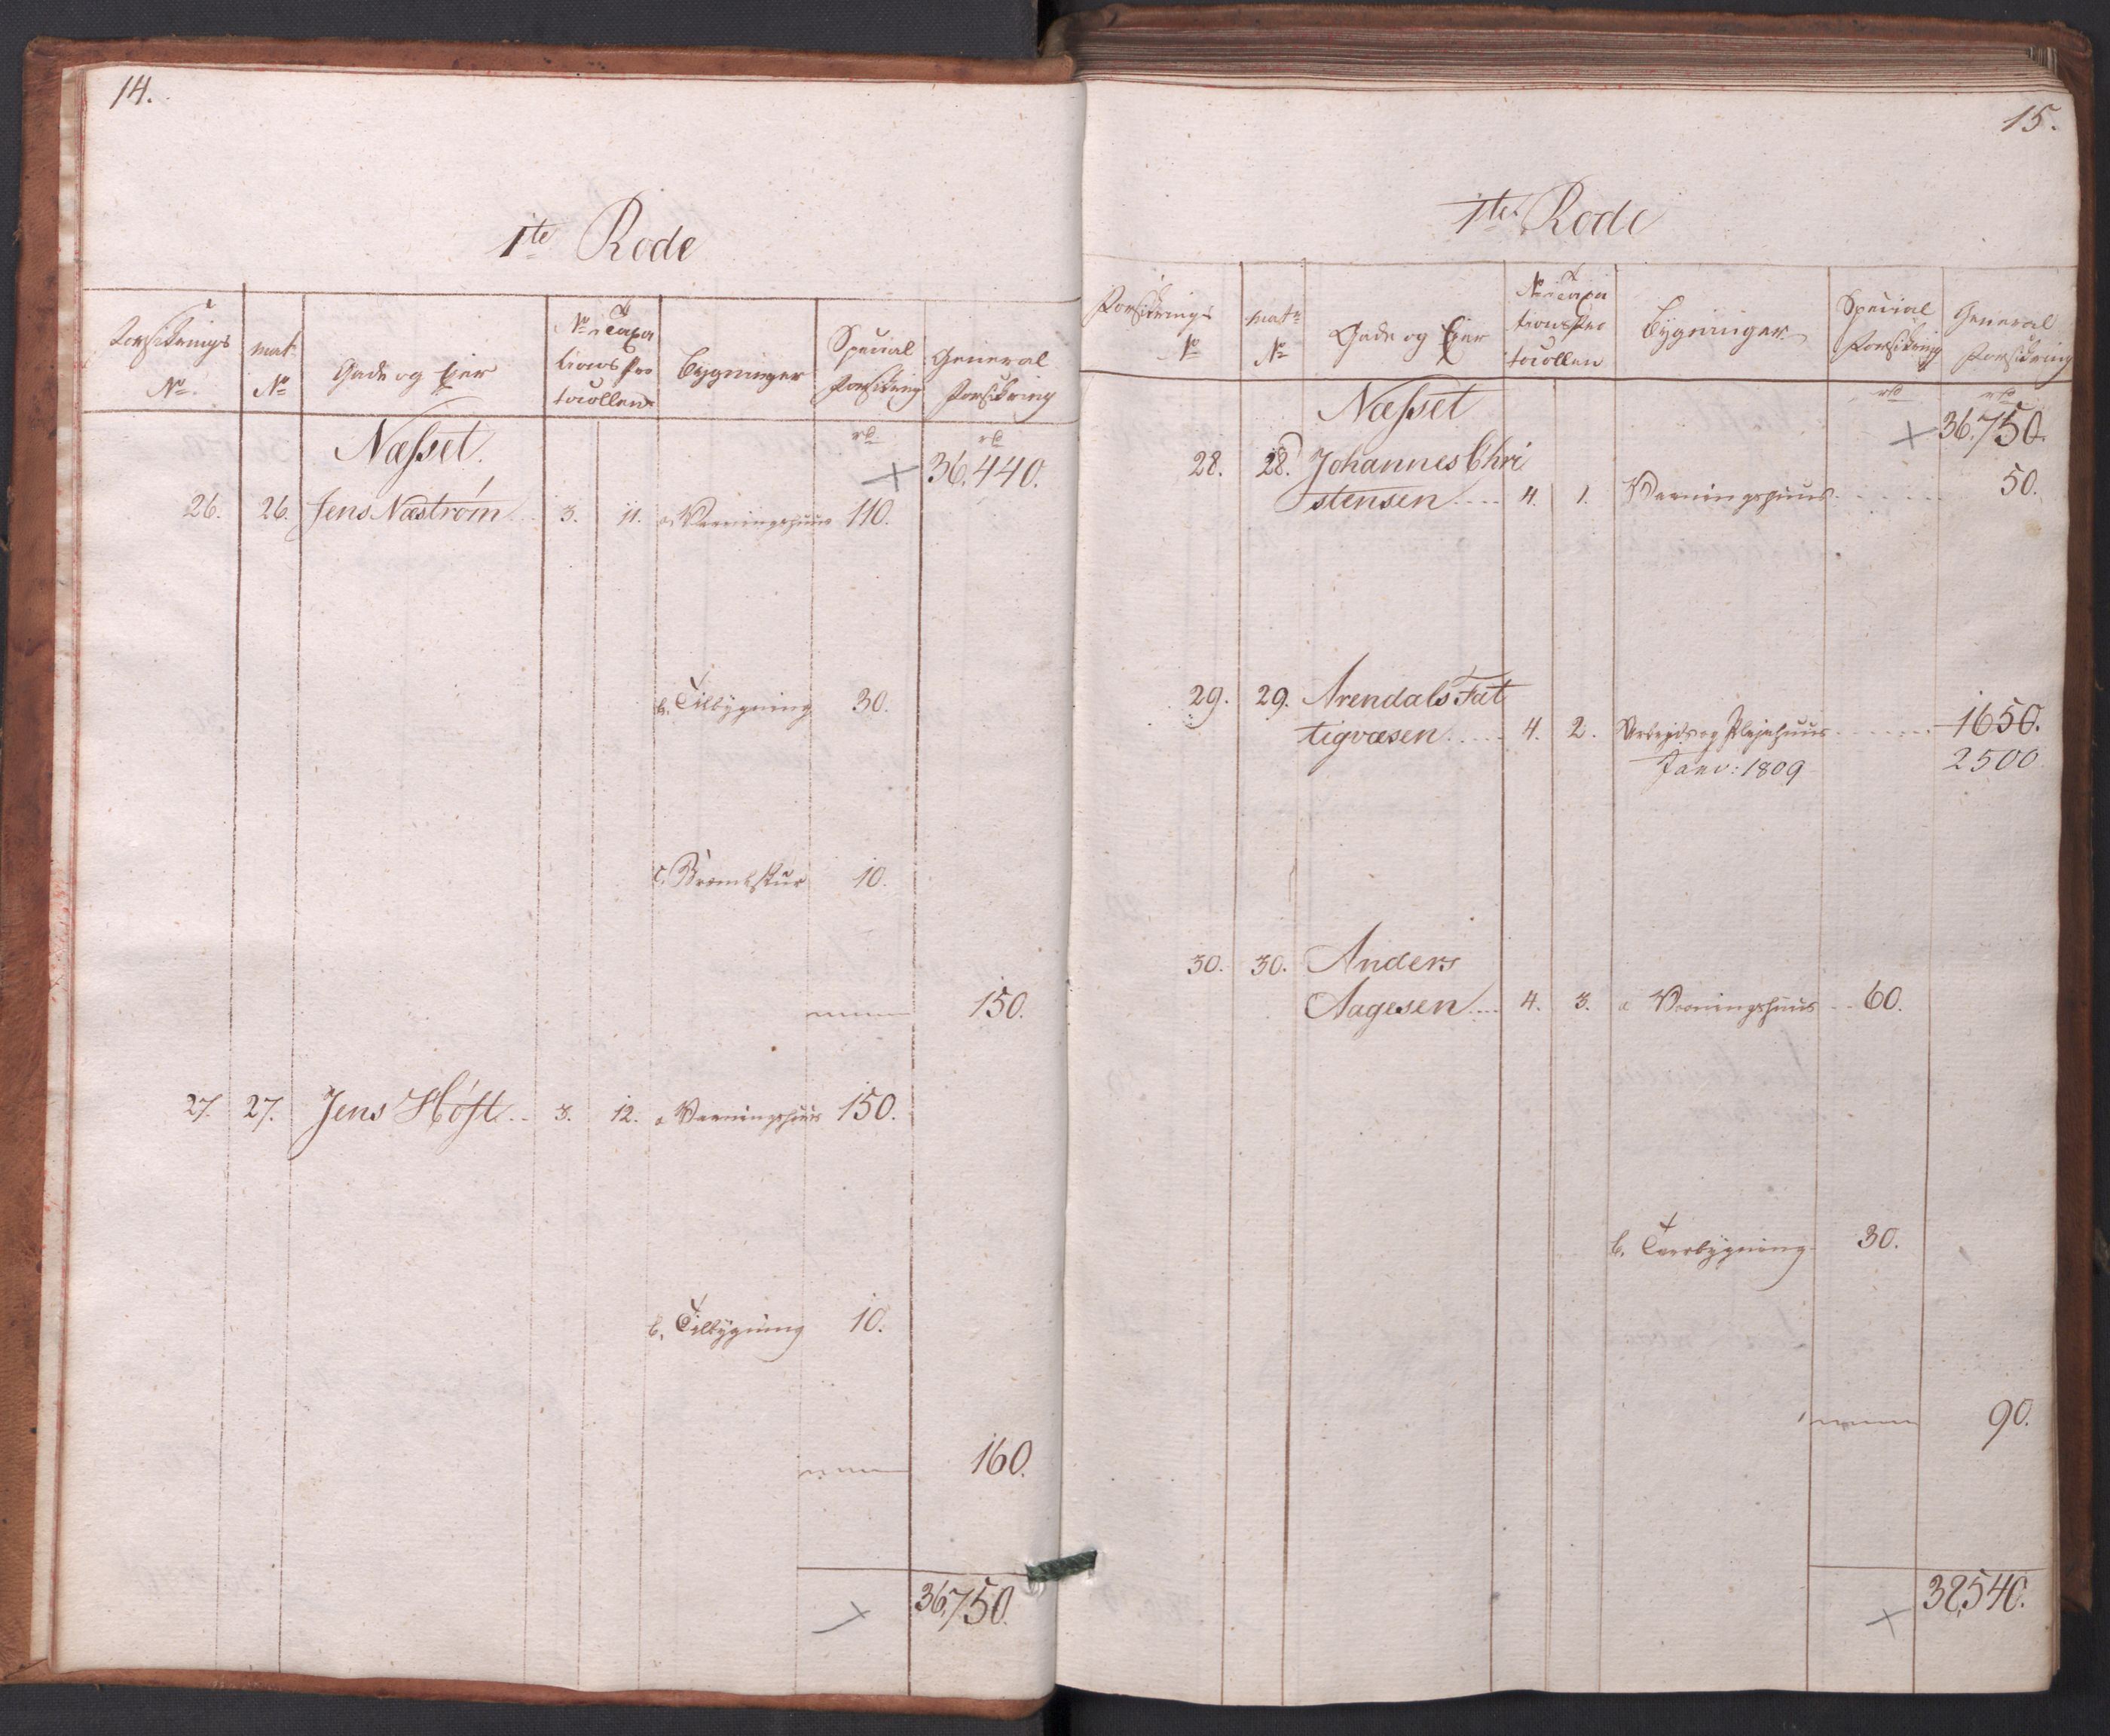 14.
1te Rode
Forsikrings No. | mat No | Gade og Eier | No i Taxationsprotocollen | Bygninger | Special Forsikring | General Forsikring
Næsset. rd rd
36,440.
26. 26. Jens Næstrøm .. 3. 11. a. Vaaningshuus 110.
b. Tilbygning 30.
c. Brændeskur 10.
150.
27. 27. Jens Høst .. 3. 12. a Vaaningshuus 150.
b. Tilbygning 10.
160.
36,750.
15.
1te Rode
Forsikrings No | matr No | Gade og Eier | No i Taxationsprotocollen | Bygninger | Special Forsikring | General Forsikring
Næsset rd rd
36,750.
28. 28. Johannes Chri
stensen .... 4. 1. Vaaningshuus ...... 50.
29. 29. Arendals Fat
tigvæsen .... 4. 2. Arbeids og Pleiehuus ...... 1650.
Janv: 1809 2500
30. 30. Anders
Aagesen ... 4. 3. a Vaaningshuus .. 60.
b. Tværbygning 30.
90.
38,540.